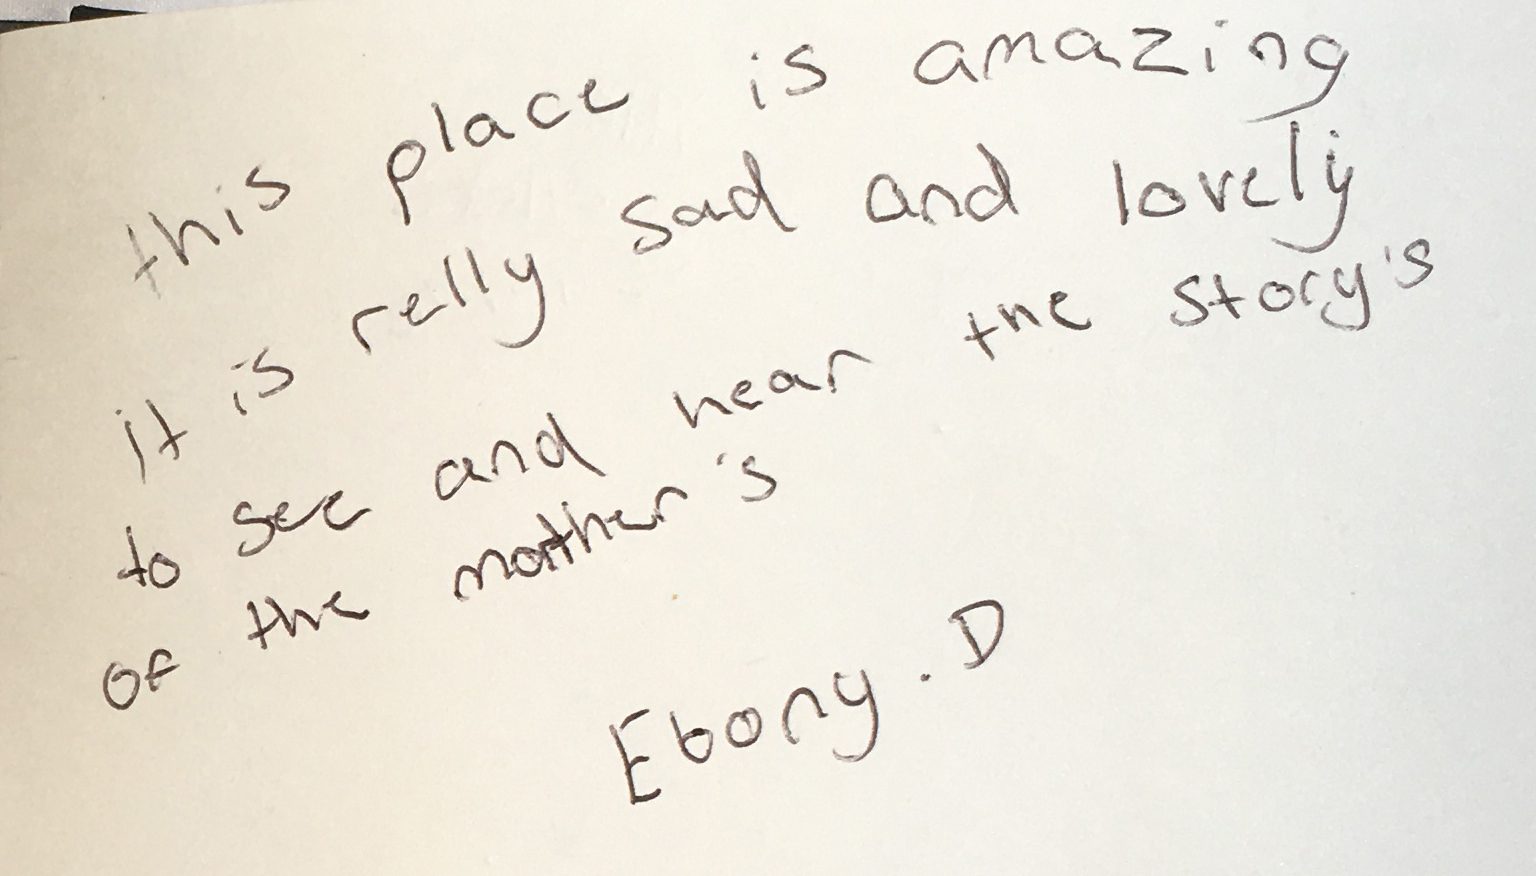 this place is amazing
it is relly sad and lovely
to see and hear the story's
of the mother's
Ebony.D